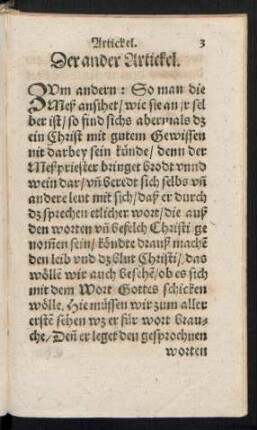 Artickel. 3
Der ander Artickel.
ZUm andern: So man die
Meß ansihet / wie sie an jr sel
ber ist / so find sichs abermals dz
ein Christ mit gutem Gewissen
nit darbey sein künde / denn der
Meßpriester bringet brodt vnnd
wein dar / vñ beredt sich selbs vñ
andere leut mit sich / daß er durch
dz sprechen etlicher wort / die auß
den worten vñ befelch Christi ge
nom̃en sein / köndte drauß machẽ
den leib vnd dz blut Christi / das
wöllẽ wir auch besehẽ / ob es sich
mit dem Wort Gottes schicken
wölle. Hie müssen wir zum aller
erstẽ sehen wz er für wort brau-
che / Deñ er leget den gesprochnen
worten